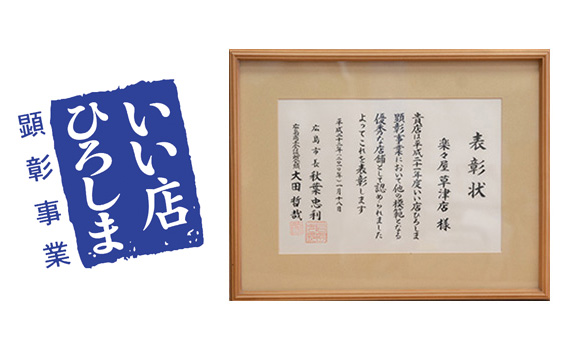 いい店
ひろしま
顕彰事業
表彰状
楽々屋 草津店 様
貴店は平成二十一年度いい店ひろしま
顕彰事業において他の模範となる
優秀な店舗として認められました
よってこれを表彰します
平成二十二年(二〇一〇年)一月十八日
広島市長 秋葉忠利
大田哲哉